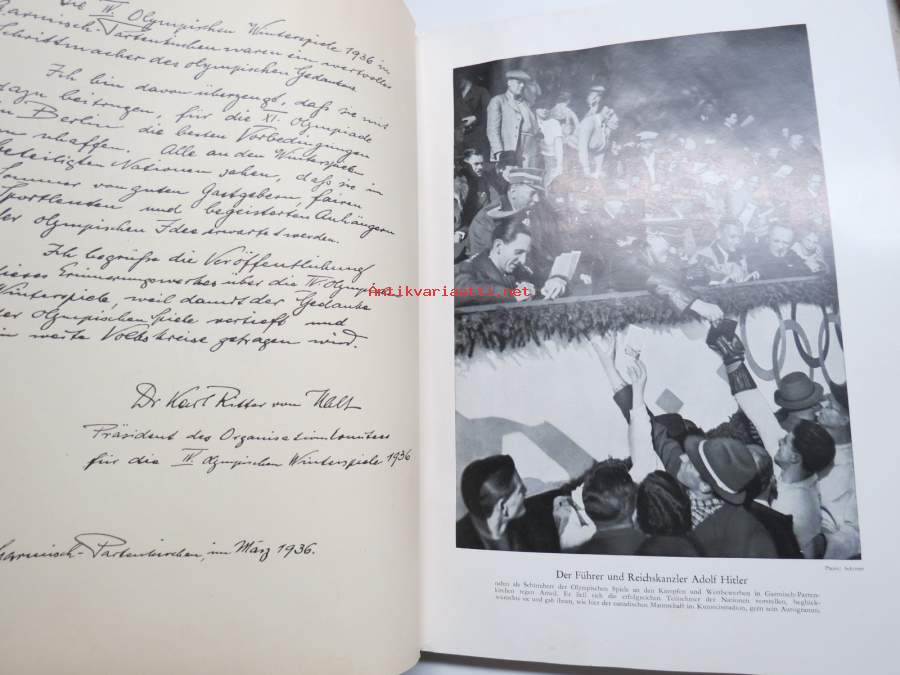 Die IV. Olympischen Winterspiele 1936 in
Garmisch-Partenkirchen waren ein wertvoller
Schrittmacher des olympischen Gedankens
Ich bin davon überzeugt, daß sie mit
dazu beitrugen, für die XI. Olympiade
in Berlin die besten Vorbedingungen
zu schaffen. Alle an den Winterspielen
beteiligten Nationen sahen, daß sie im
Sommer von guten Gastgebern, fairen
Sportleuten und begeisterten Anhängern
der olympischen Idee erwartet werden.
Ich begrüße die Veröffentlichung
dieses Erinnerungswerkes über die IV. Olymp.
Winterspiele, weil damit der Gedanke
der Olympischen Spiele vertieft und
in weite Volkskreise getragen wird.
Dr Karl Ritter von Halt
Präsident des Organisationskomitees
für die IV. Olympischen Winterspiele 1936
Garmisch-Partenkirchen, im März 1936.
Antikvariaatti.net
Photo: Schirner
Der Führer und Reichskanzler Adolf Hitler
nahm als Schirmherr der Olympischen Spiele an den Kämpfen und Wettbewerben in Garmisch-Parten-
kirchen regen Anteil. Er ließ sich die erfolgreichen Teilnehmer der Nationen vorstellen, beglück-
wünschte sie und gab ihnen, wie hier der kanadischen Mannschaft im Kunsteisstadion, gern sein Autogramm.